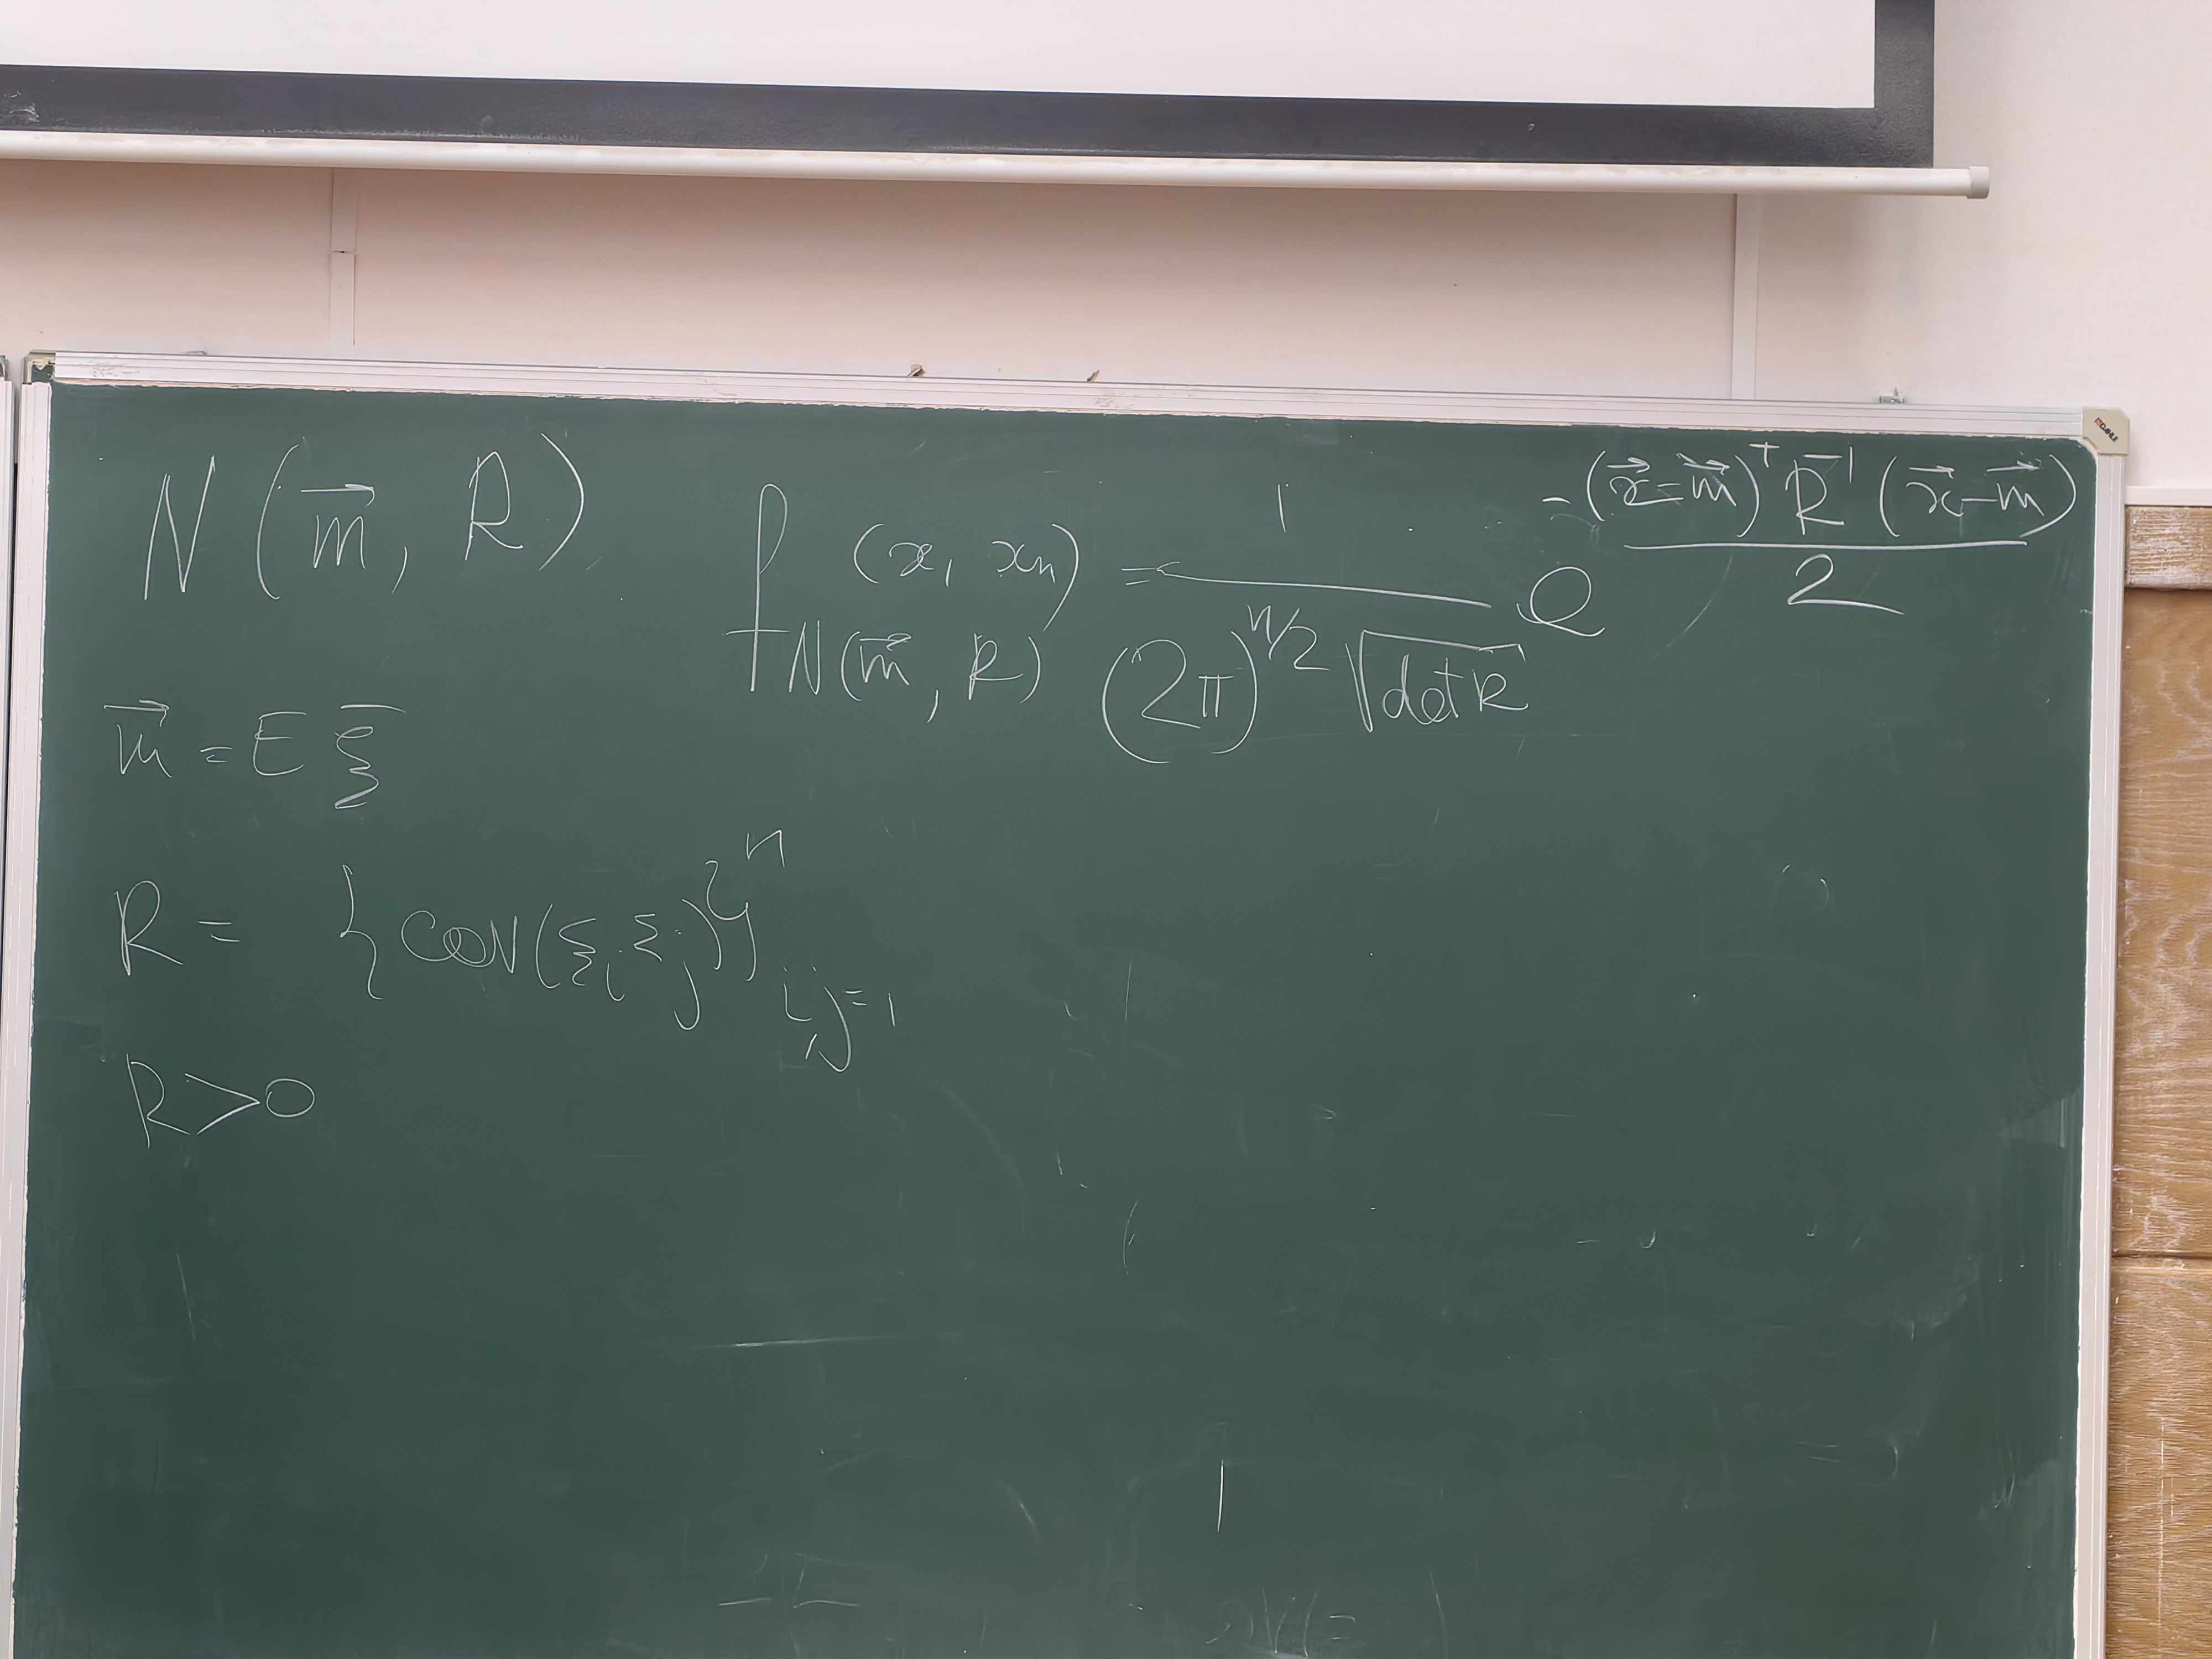 N(m⃗, R)
f_{N(m⃗, R)}(x, xn) = 1 / ((2π)^{n/2} √det R) e^{-(x⃗-m⃗)^T R^{-1} (x⃗-m⃗) / 2}
m⃗ = E ξ̅
R = {cov(ξ_i ξ_j)}^n_{i,j=1}
R>0